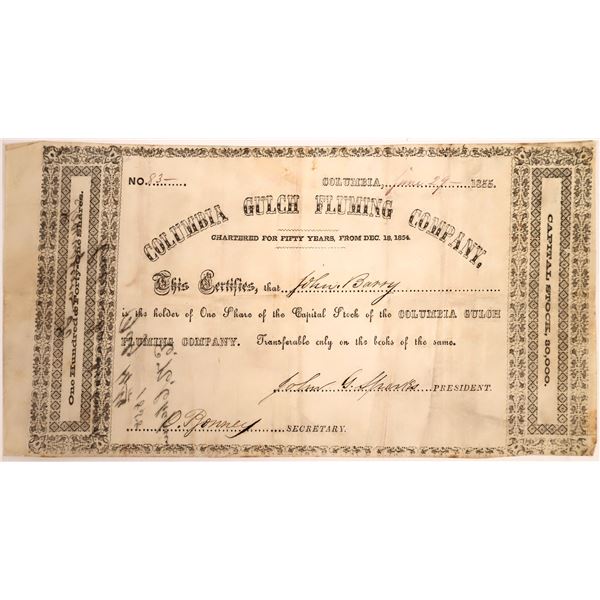 One Hundred & Forty-one Shares.
NO. 83
COLUMBIA, June 29 1855.
COLUMBIA GULCH FLUMING COMPANY.
CHARTERED FOR FIFTY YEARS, FROM DEC. 18, 1854.
This Certifies, that John Barry
is the holder of One Share of the Capital Stock of the COLUMBIA GULCH
FLUMING COMPANY. Transferable only on the books of the same.
John C. Sparks PRESIDENT.
C. Bonney SECRETARY.
CAPITAL STOCK, 80,000.